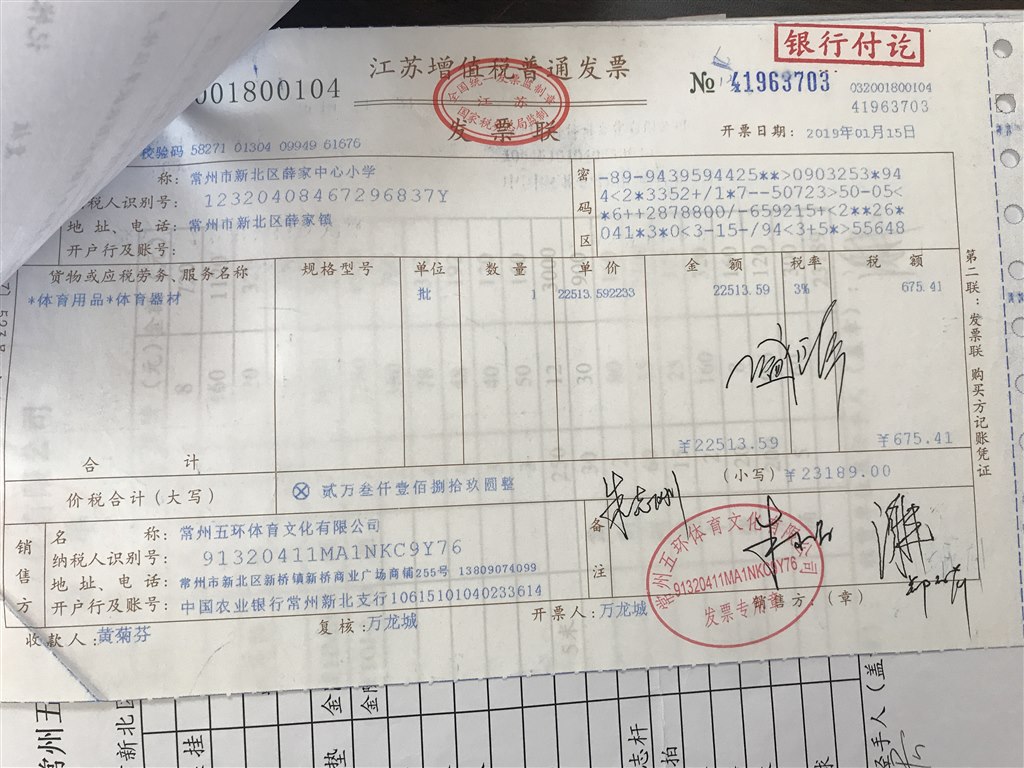 银行付讫
江苏增值税普通发票
001800104
发票联
全国统一发票监制章
江苏
国家税务总局监制
№ 41963703
032001800104
41963703
校验码 58271 01304 09949 61676
开票日期: 2019年01月15日
称: 常州市新北区薛家中心小学
税人识别号: 12320408467296837Y
地址、电话: 常州市新北区薛家镇
开户行及账号:
密码区
-89-9439594425**>0903253*94
4<2*3352+/1*7--50723>50-05<
*6++2878800/-659215+<2**26*
041*3*0<3-15-/94<3+5*>55648
货物或应税劳务、服务名称 规格型号 单位 数量 单价 金额 税率 税额
*体育用品*体育器材 批 1 22513.592233 22513.59 3% 675.41
合计 ¥22513.59 ¥675.41
价税合计(大写) ⊗ 贰万叁仟壹佰捌拾玖圆整 (小写) ¥23189.00
销售方
名称: 常州五环体育文化有限公司
纳税人识别号: 91320411MA1NKC9Y76
地址、电话: 常州市新北区新桥镇新桥商业广场商铺255号 13809074099
开户行及账号: 中国农业银行常州新北支行10615101040233614
备注
收款人: 黄菊芬 复核: 万龙城 开票人: 万龙城 销售方:(章)
常州五环体育文化有限公司
91320411MA1NKC9Y76
发票专用章
第二联:发票联 购买方记账凭证
常州五
新北区
挂
垫
金
金
志杆
拍
球
手人(盖